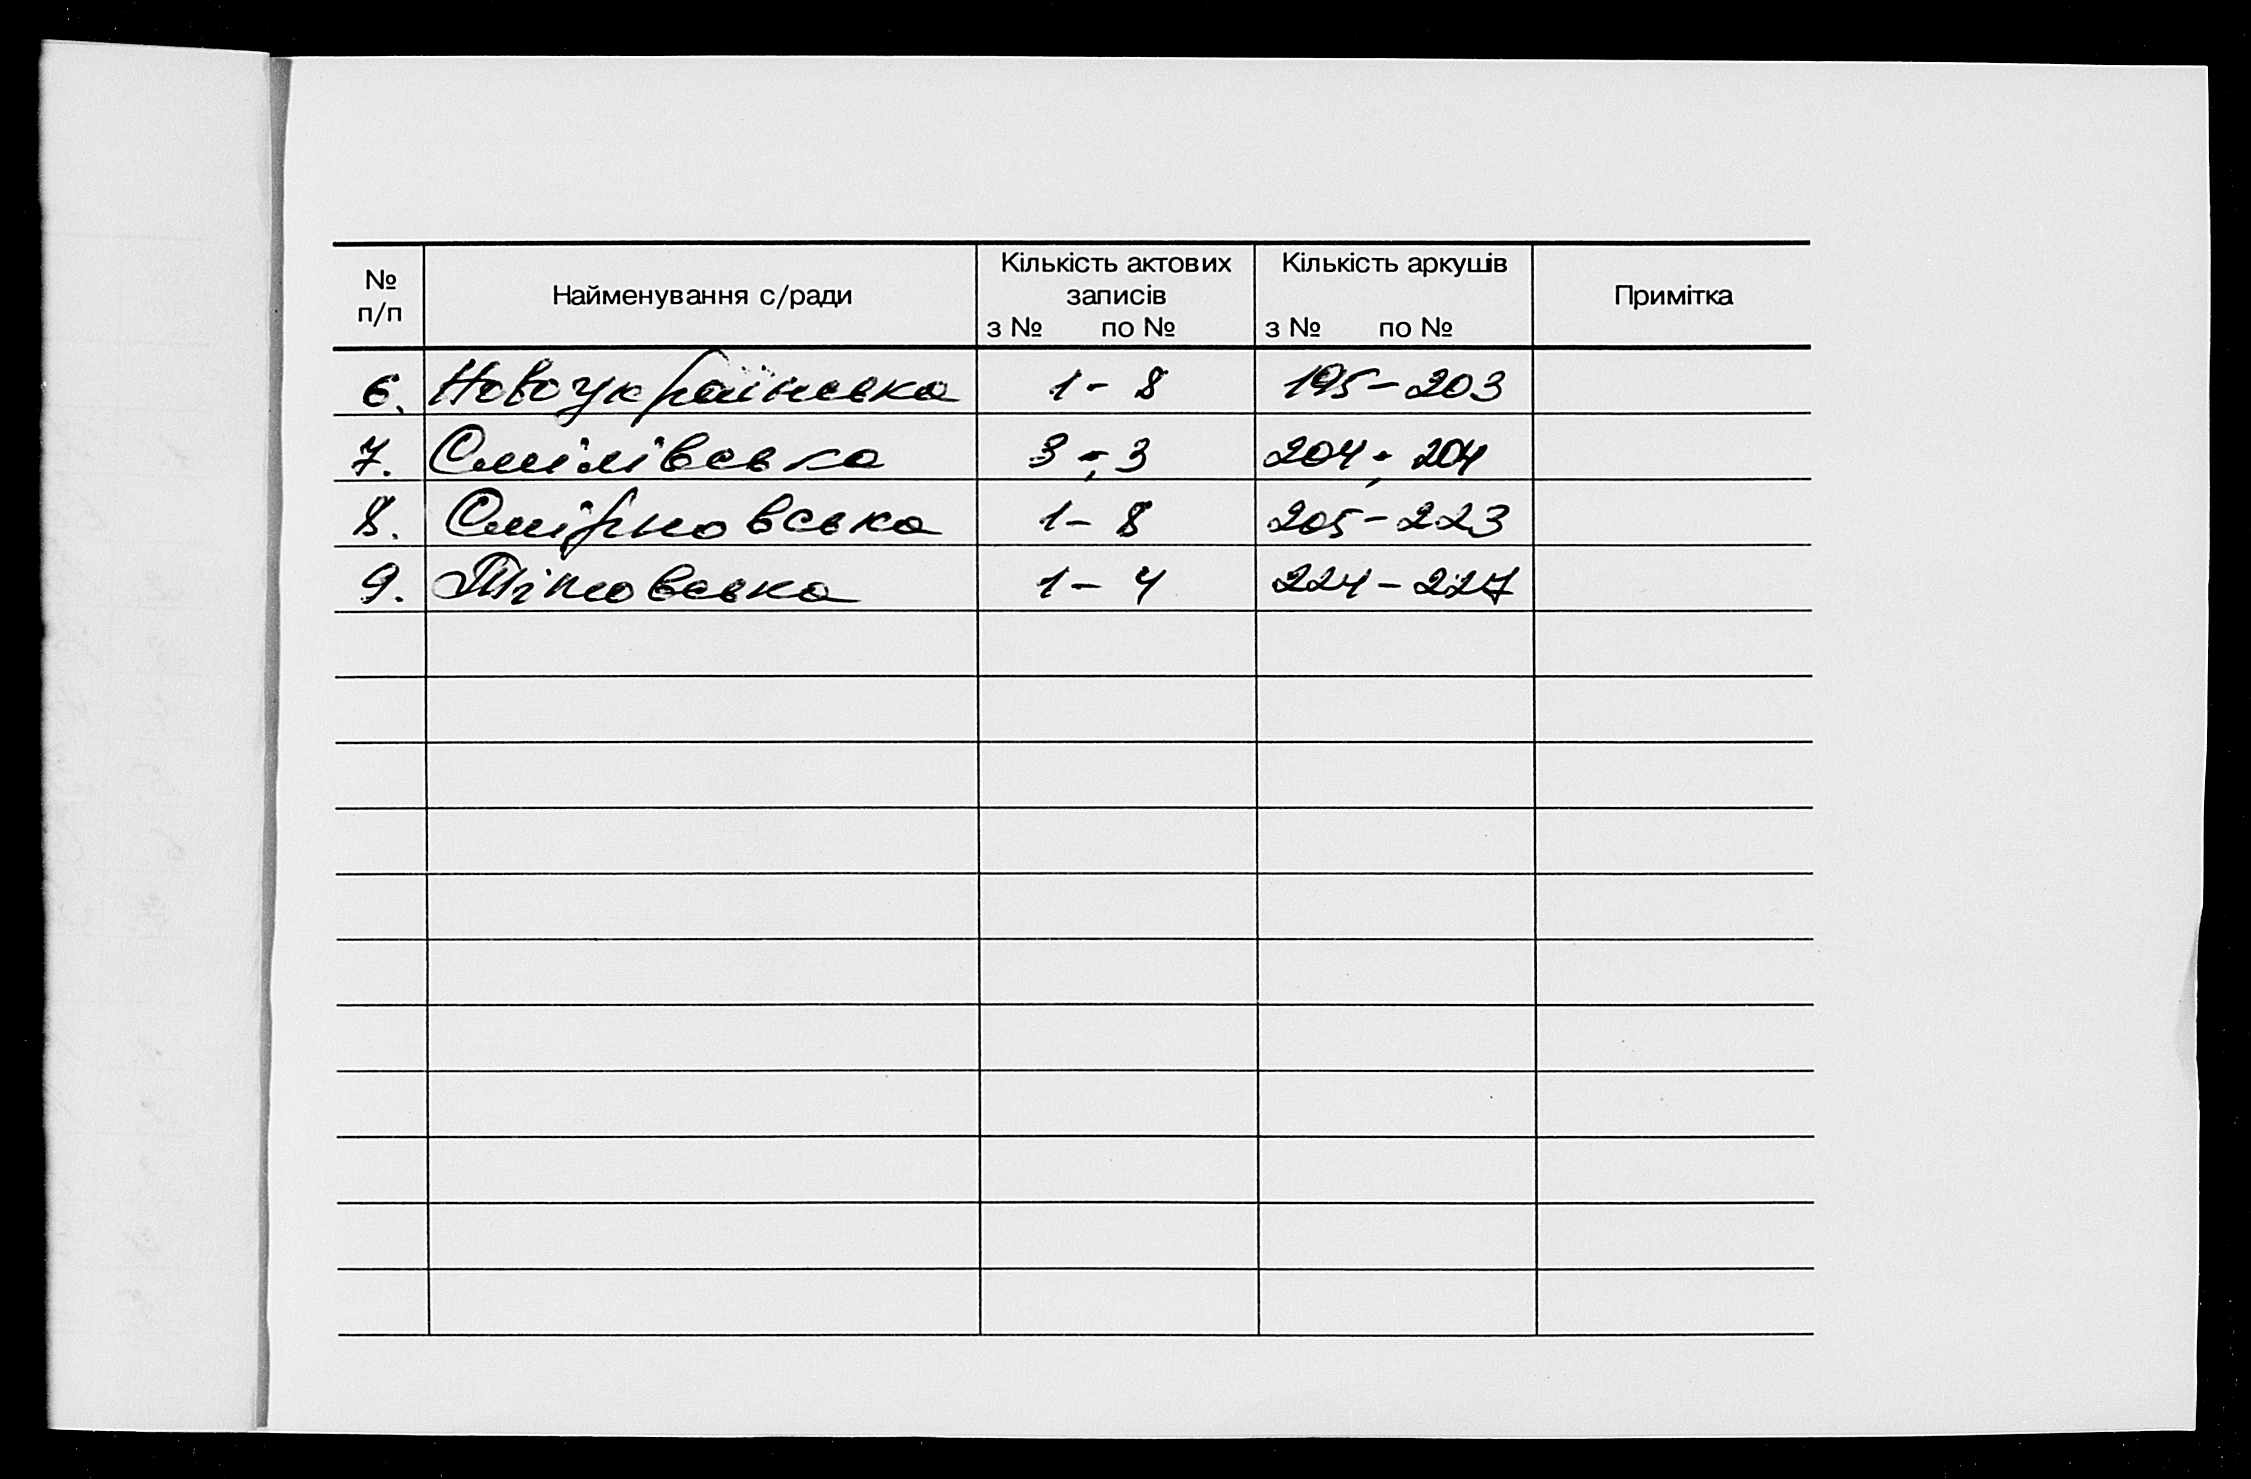 № п/п Найменування с/ради Кількість актових записів з № по № Кількість аркушів з № по № Примітка
6. Новоукраїнська 1 - 8 195 - 203
7. Смілівська 3 - 3 204 - 204
8. Смірновська 1 - 8 205 - 223
9. 1 - 4 224 - 227